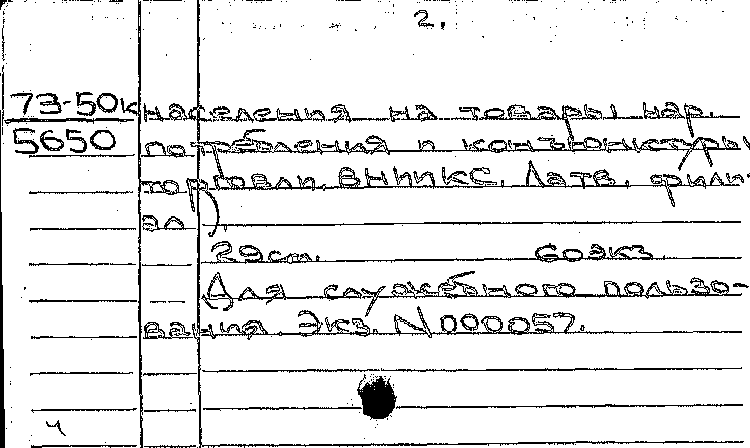 2.
73-50к населения на товары нар.
5650 потребления и конъюнктуры
торговли. ВНИИКС. Латв. фили-
ал).
29 см. 60 экз.
Для служебного пользо-
вания. Экз. N 000057.
ч